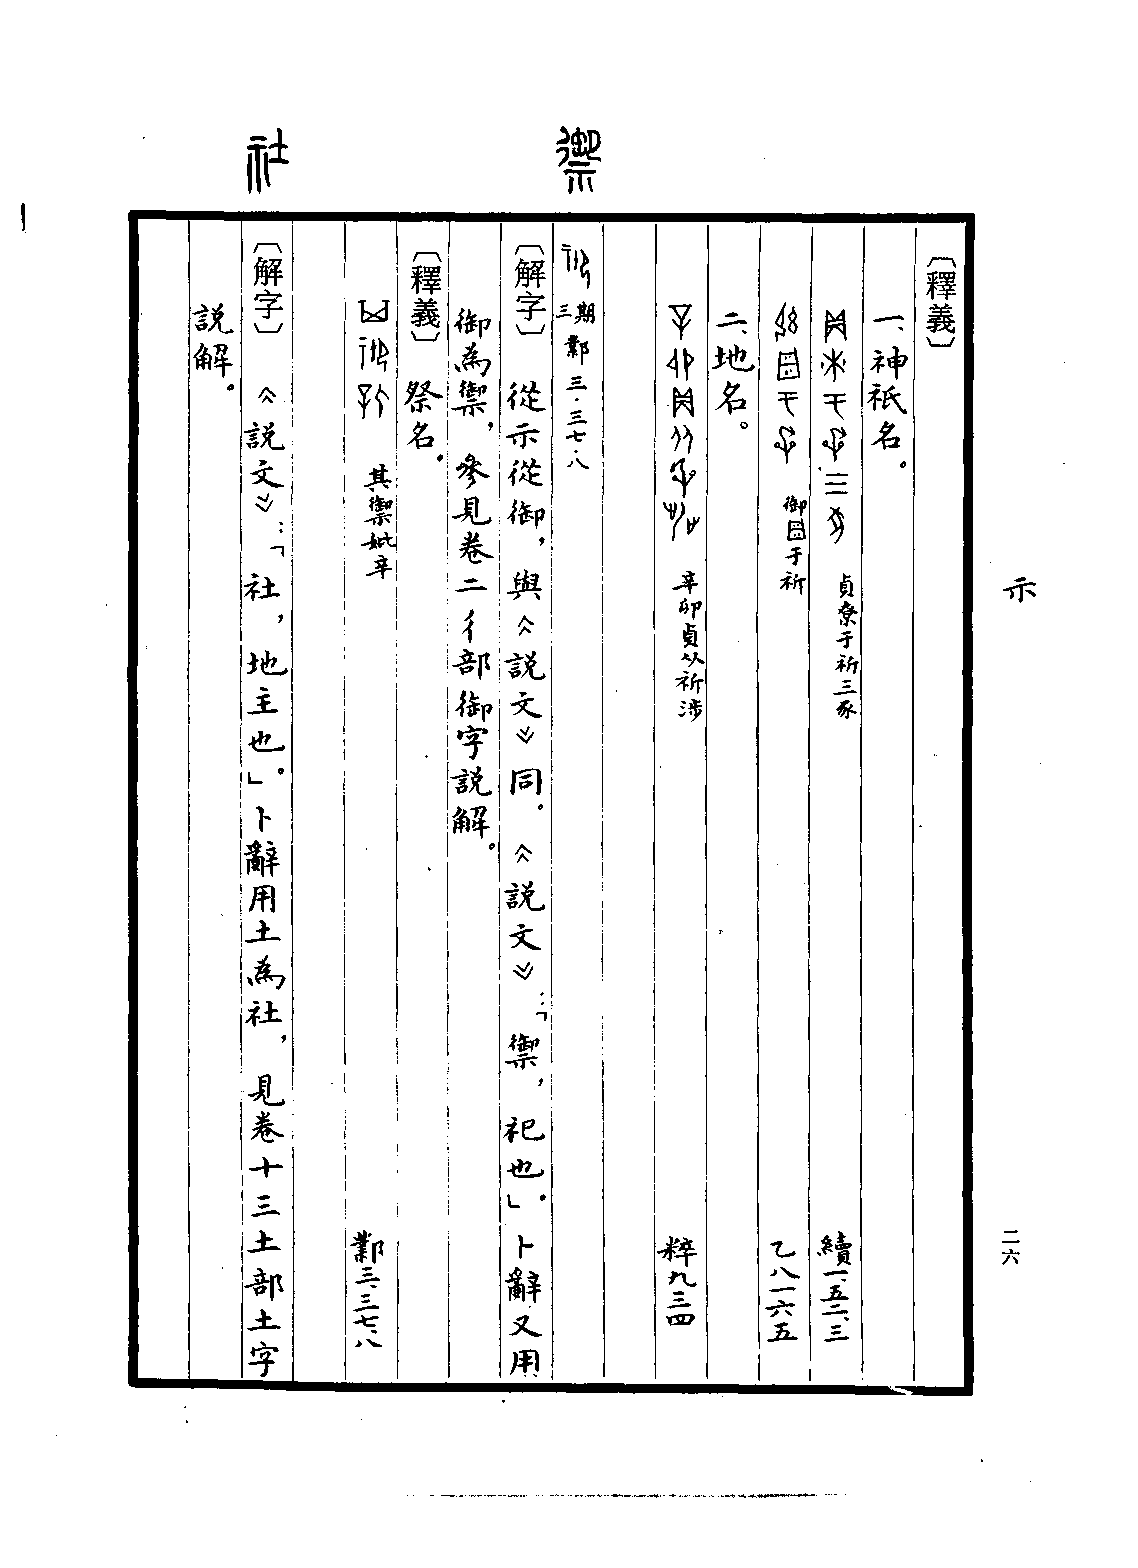 示
二六
〔釋義〕
一、神祇名。
貞尞于祈三豕 續一、五二、三
御𤰔于祈 乙八一六五
二、地名。
辛卯貞从祈涉 粹九三四
禦
三期 鄴三·三七·八
〔解字〕 從示從御,與《說文》同。《說文》:「禦,祀也。」卜辭又用
御為禦,參見卷二彳部御字說解。
〔釋義〕 祭名。
其禦妣辛 鄴三、三七、八
社
〔解字〕 《說文》:「社,地主也。」卜辭用土為社,見卷十三土部土字
說解。